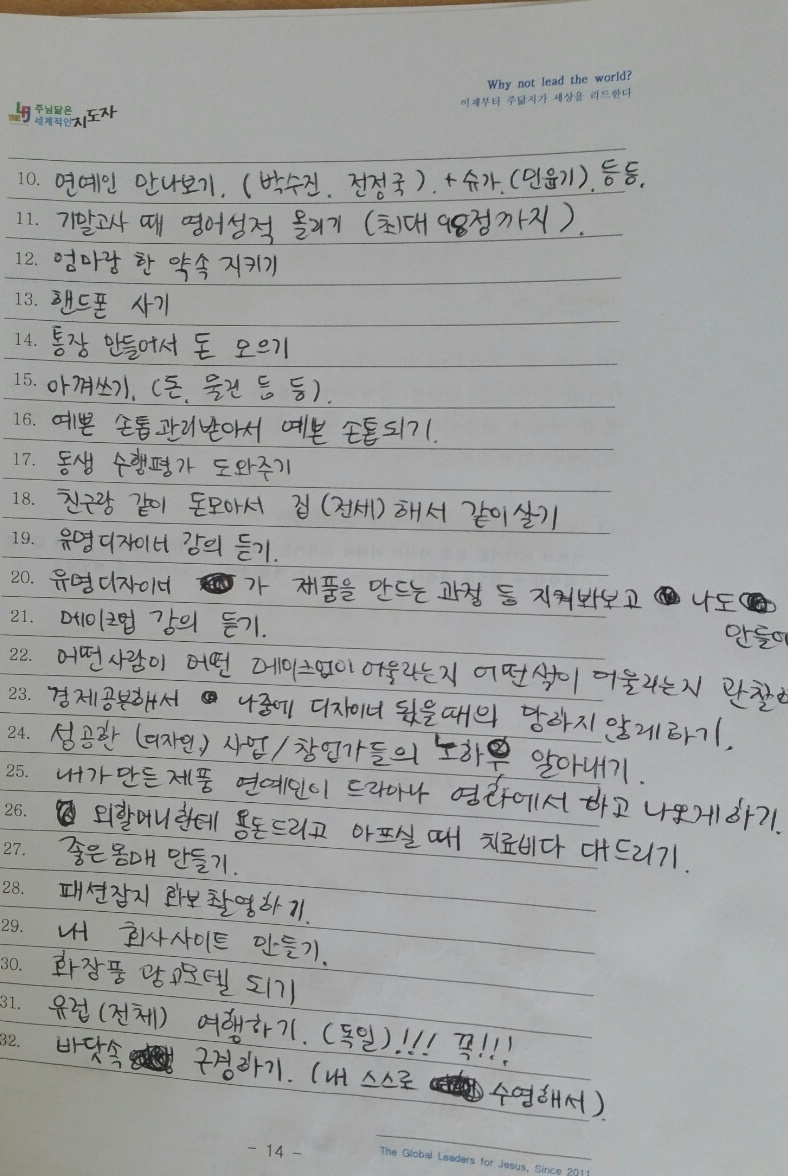 Why not lead the world?
이제부터 주닮지가 세상을 리드한다
주님닮은
세계적인 지도자
10. 연예인 만나보기. (박수진. 전정국). + 슈가. (민윤기). 등등.
11. 기말고사 때 영어성적 올리기 (최대 98점까지).
12. 엄마랑 한 약속 지키기
13. 핸드폰 사기
14. 통장 만들어서 돈 모으기
15. 아껴쓰기. (돈. 물건 등 등).
16. 예쁜 손톱관리받아서 예쁜 손톱되기.
17. 동생 수행평가 도와주기
18. 친구랑 같이 돈모아서 집 (전세) 해서 같이살기
19. 유명디자이너 강의 듣기.
20. 유명디자이너 가 제품을 만드는 과정 등 지켜봐보고 나도
만들어
21. 메이크업 강의 듣기.
22. 어떤사람이 어떤 메이크업이 어울리는지 어떤색이 어울리는지 관찰
23. 경제공부해서 나중에 디자이너 됬을때의 망하지 않게하기.
24. 성공한 (디자인) 사업/창업가들의 노하우 알아내기.
25. 내가만든제품 연예인이 드라마나 영화에서 하고 나오게하기.
26. 외할머니한테 용돈드리고 아프실 때 치료비다 대드리기.
27. 좋은몸매 만들기.
28. 패션잡지 화보촬영하기.
29. 내 회사사이트 만들기.
30. 화장품 광고모델 되기
31. 유럽(전체) 여행하기. (독일)!!! 꼭!!!
32. 바닷속 구경하기. (내 스스로 수영해서).
- 14 -
The Global Leaders for Jesus, Since 2011